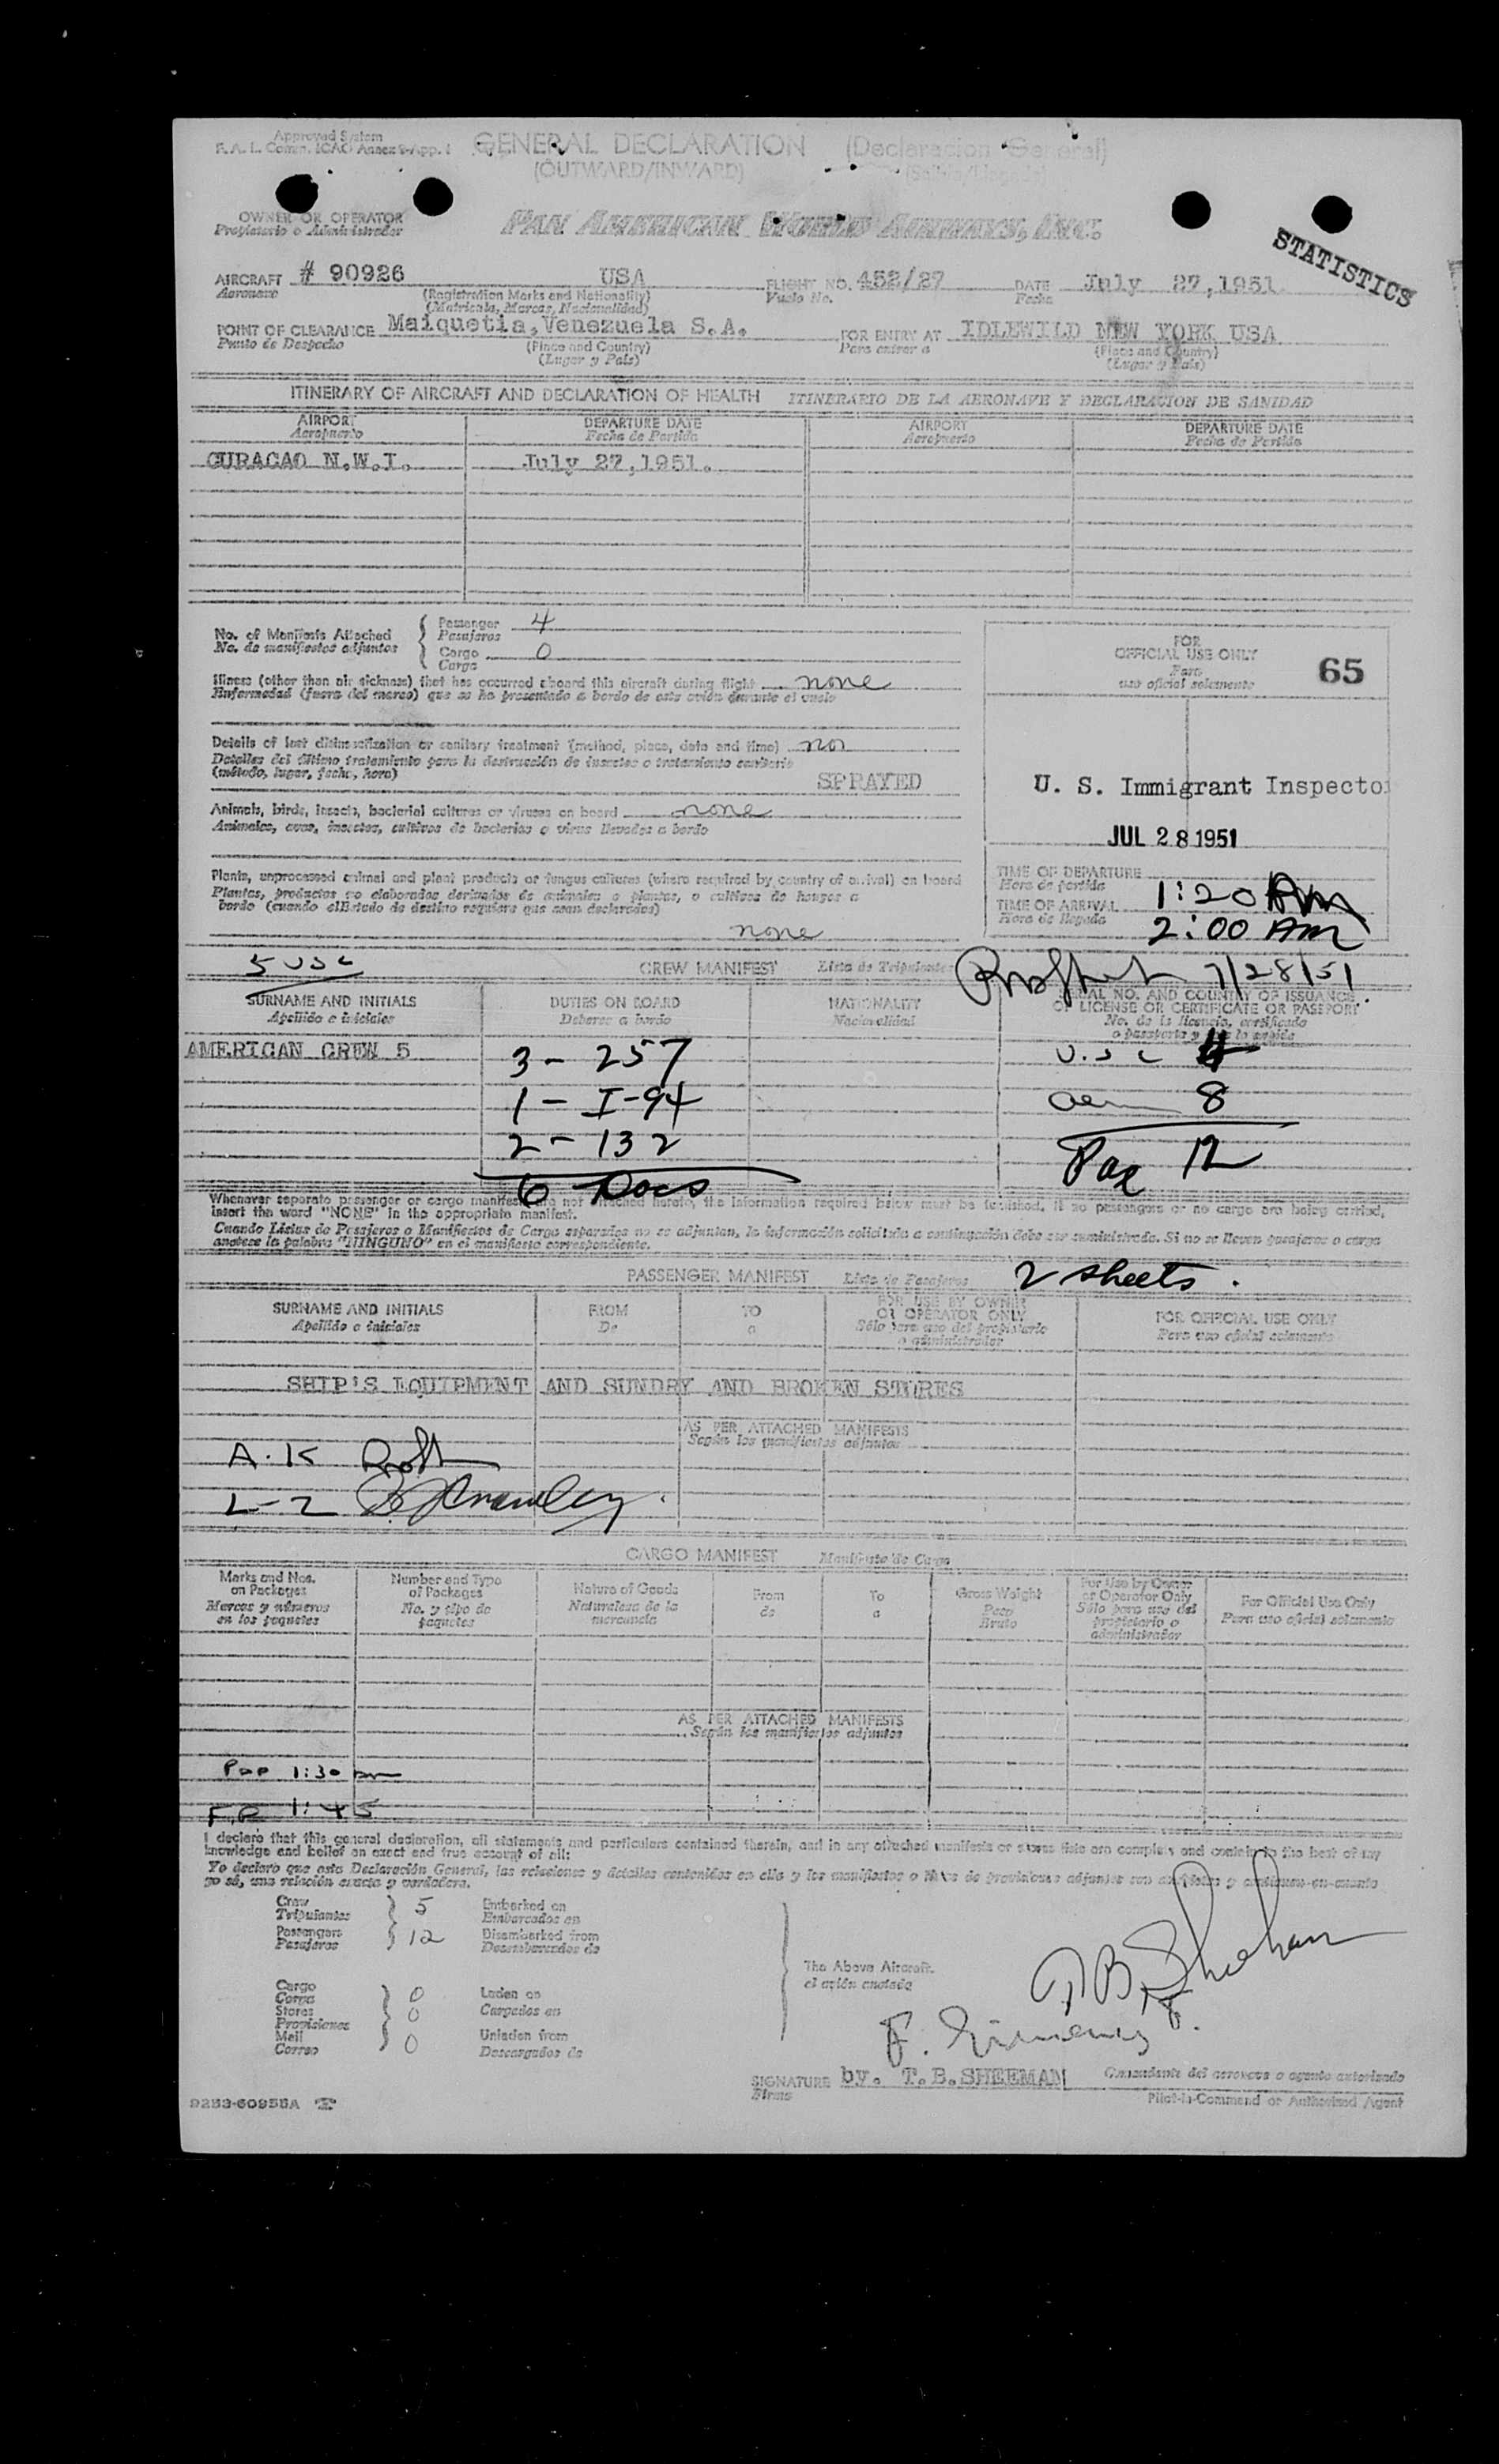 Approved System
F.A.L. Comm. ICAO Annex 9-App. 1
GENERAL DECLARATION (Declaracion General)
(OUTWARD/INWARD)
OWNER OR OPERATOR
Propietario o Administrador
PAN AMERICAN WORLD AIRWAYS, INC.
STATISTICS
AIRCRAFT # 90926 USA FLIGHT NO. 452/27 DATE July 27,1951
Aeronave (Registration Marks and Nationality) Vuelo No. Fecha
(Matricula, Marcas, Nacionalidad)
POINT OF CLEARANCE Maiquetia,Venezuela S.A. FOR ENTRY AT IDLEWILD NEW YORK USA
Punto de Despacho (Place and Country) Para entrar a (Place and Country)
(Lugar y Pais) (Lugar y Pais)
ITINERARY OF AIRCRAFT AND DECLARATION OF HEALTH ITINERARIO DE LA AERONAVE Y DECLARACION DE SANIDAD
AIRPORT DEPARTURE DATE AIRPORT DEPARTURE DATE
Aeropuerto Fecha de Partida Aeropuerto Fecha de Partida
CURACAO N.W.I. July 27,1951.
No. of Manifests Attached Passenger 4
No. de manifiestos adjuntos Pasajeros
Cargo 0
Carga
FOR
OFFICIAL USE ONLY
Para
uso oficial solamente
65
Illness (other than air sickness) that has occurred aboard this aircraft during flight none
Enfermedad (fuera del mareo) que se ha presentado a bordo de este avión durante el vuelo
Details of last disinsectization or sanitary treatment (method, place, date and time) no
Detalles del último tratamiento para la destrucción de insectos o tratamiento sanitario
(método, lugar, fecha, hora)
SPRAYED
U. S. Immigrant Inspector
Animals, birds, insects, bacterial cultures or viruses on board none
Animales, aves, insectos, cultivos de bacterias o virus llevados a bordo
JUL 28 1951
Plants, unprocessed animal and plant products or fungus cultures (where required by country of arrival) on board
Plantas, productos no elaborados derivados de animales o plantas, o cultivos de hongos a
bordo (cuando el Estado de destino requiera que sean declarados)
none
TIME OF DEPARTURE
Hora de partida 1:20 AM
TIME OF ARRIVAL
Hora de llegada 2:00 AM
5 USC CREW MANIFEST Lista de Tripulantes 7/28/51
SURNAME AND INITIALS DUTIES ON BOARD NATIONALITY SERIAL NO. AND COUNTRY OF ISSUANCE
Apellido e iniciales Deberes a bordo Nacionalidad OF LICENSE OR CERTIFICATE OR PASSPORT
No. de la licencia, certificado
AMERICAN CREW 5 3 - 257 U.S.C 4
1 - I-94 8
2 - 132
6 Docs Pax 12
Whenever separate passenger or cargo manifests are not attached hereto, the information required below must be furnished. If no passengers or no cargo are being carried,
insert the word "NONE" in the appropriate manifest.
Cuando Listas de Pasajeros o Manifiestos de Carga separados no se adjuntan, la información solicitada a continuación debe ser suministrada. Si no se lleven pasajeros o carga
anótese la palabra "NINGUNO" en el manifiesto correspondiente.
PASSENGER MANIFEST Lista de Pasajeros 2 sheets.
SURNAME AND INITIALS FROM TO FOR USE BY OWNER FOR OFFICIAL USE ONLY
Apellido e iniciales De a OR OPERATOR ONLY Para uso oficial solamente
Sólo para uso del propietario
o administrador
SHIP'S EQUIPMENT AND SUNDRY AND BROKEN STORES
AS PER ATTACHED MANIFESTS
Según los manifiestos adjuntos
A.K
L-2
CARGO MANIFEST Manifiesto de Carga
Marks and Nos. Number and Type Nature of Goods From To Gross Weight For Use by Owner For Official Use Only
on Packages of Packages Naturaleza de la de a Peso or Operator Only Para uso oficial solamente
Marcas y números No. y tipo de mercancia Bruto Sólo para uso del
en los paquetes paquetes propietario o
administrador
AS PER ATTACHED MANIFESTS
Según los manifiestos adjuntos
1:30
1:45
I declare that this general declaration, all statements and particulars contained therein, and in any attached manifests or stores lists are complete and contain to the best of my
knowledge and belief an exact and true account of all:
Yo declaro que esta Declaración General, las relaciones y detalles contenidos en ella y los manifiestos o listas de provisiones adjuntos son completos y contienen en cuanto
yo sé, una relación exacta y verdadera.
Crew 5 Embarked on
Tripulantes Embarcados en
Passengers 12 Disembarked from
Pasajeros Desembarcados de
The Above Aircraft.
el avión anotado
Cargo 0 Laden on
Carga
Stores 0 Cargados en
Provisiones
Mail 0 Unladen from
Correo Descargados de
SIGNATURE by. T.B.SHEEMAN Comandante del aeronave o agente autorizado
Firma Pilot-in-Command or Authorized Agent
9283-6095BA